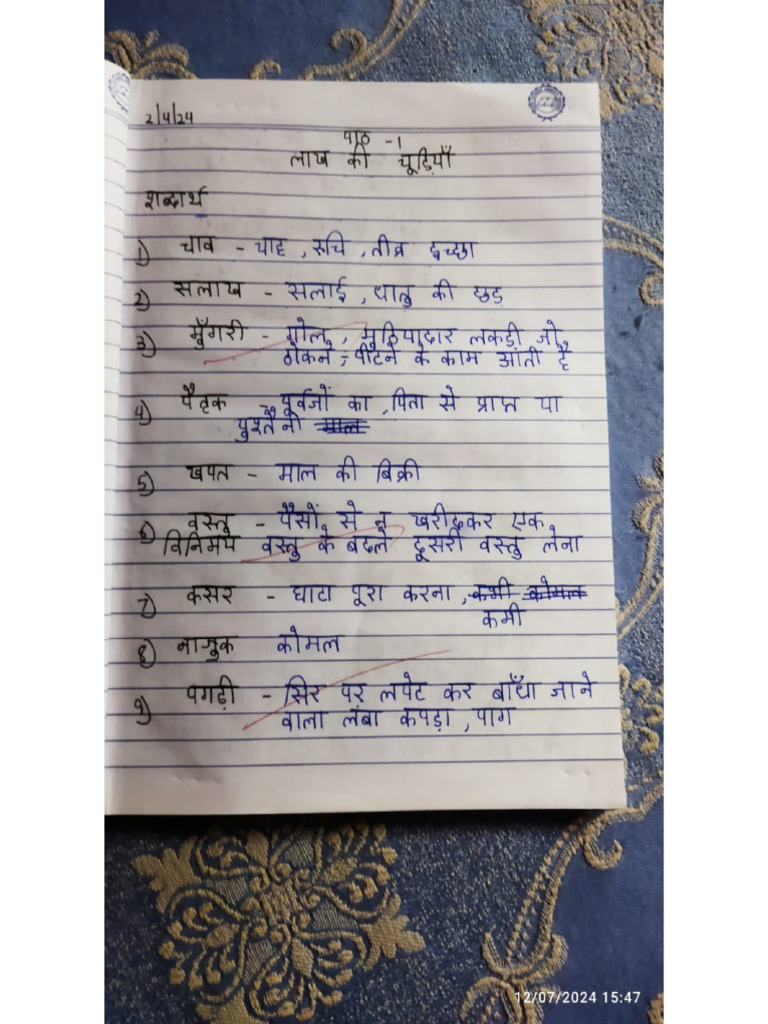 2/4/24
पाठ -1
लाख की चूड़ियाँ
शब्दार्थ
1) चाव - चाह, रूचि, तीव्र इच्छा
2) सलाख - सलाई, धातु की छड़
3) मुँगरी - गोल, मुठियादार लकड़ी जो
ठोकने, पीटने के काम आती है
4) पैतृक - पूर्वजों का, पिता से प्राप्त या
पुश्तैनी माल
5) खपत - माल की बिक्री
6) वस्तु - पैसों से न खरीदकर एक
विनिमय वस्तु के बदले दूसरी वस्तु लेना
7) कसर - घाटा पूरा करना, कभी कोमल
कमी
8) नाजुक कोमल
9) पगड़ी - सिर पर लपेट कर बाँधा जाने
वाला लंबा कपड़ा, पाग
12/07/2024 15:47